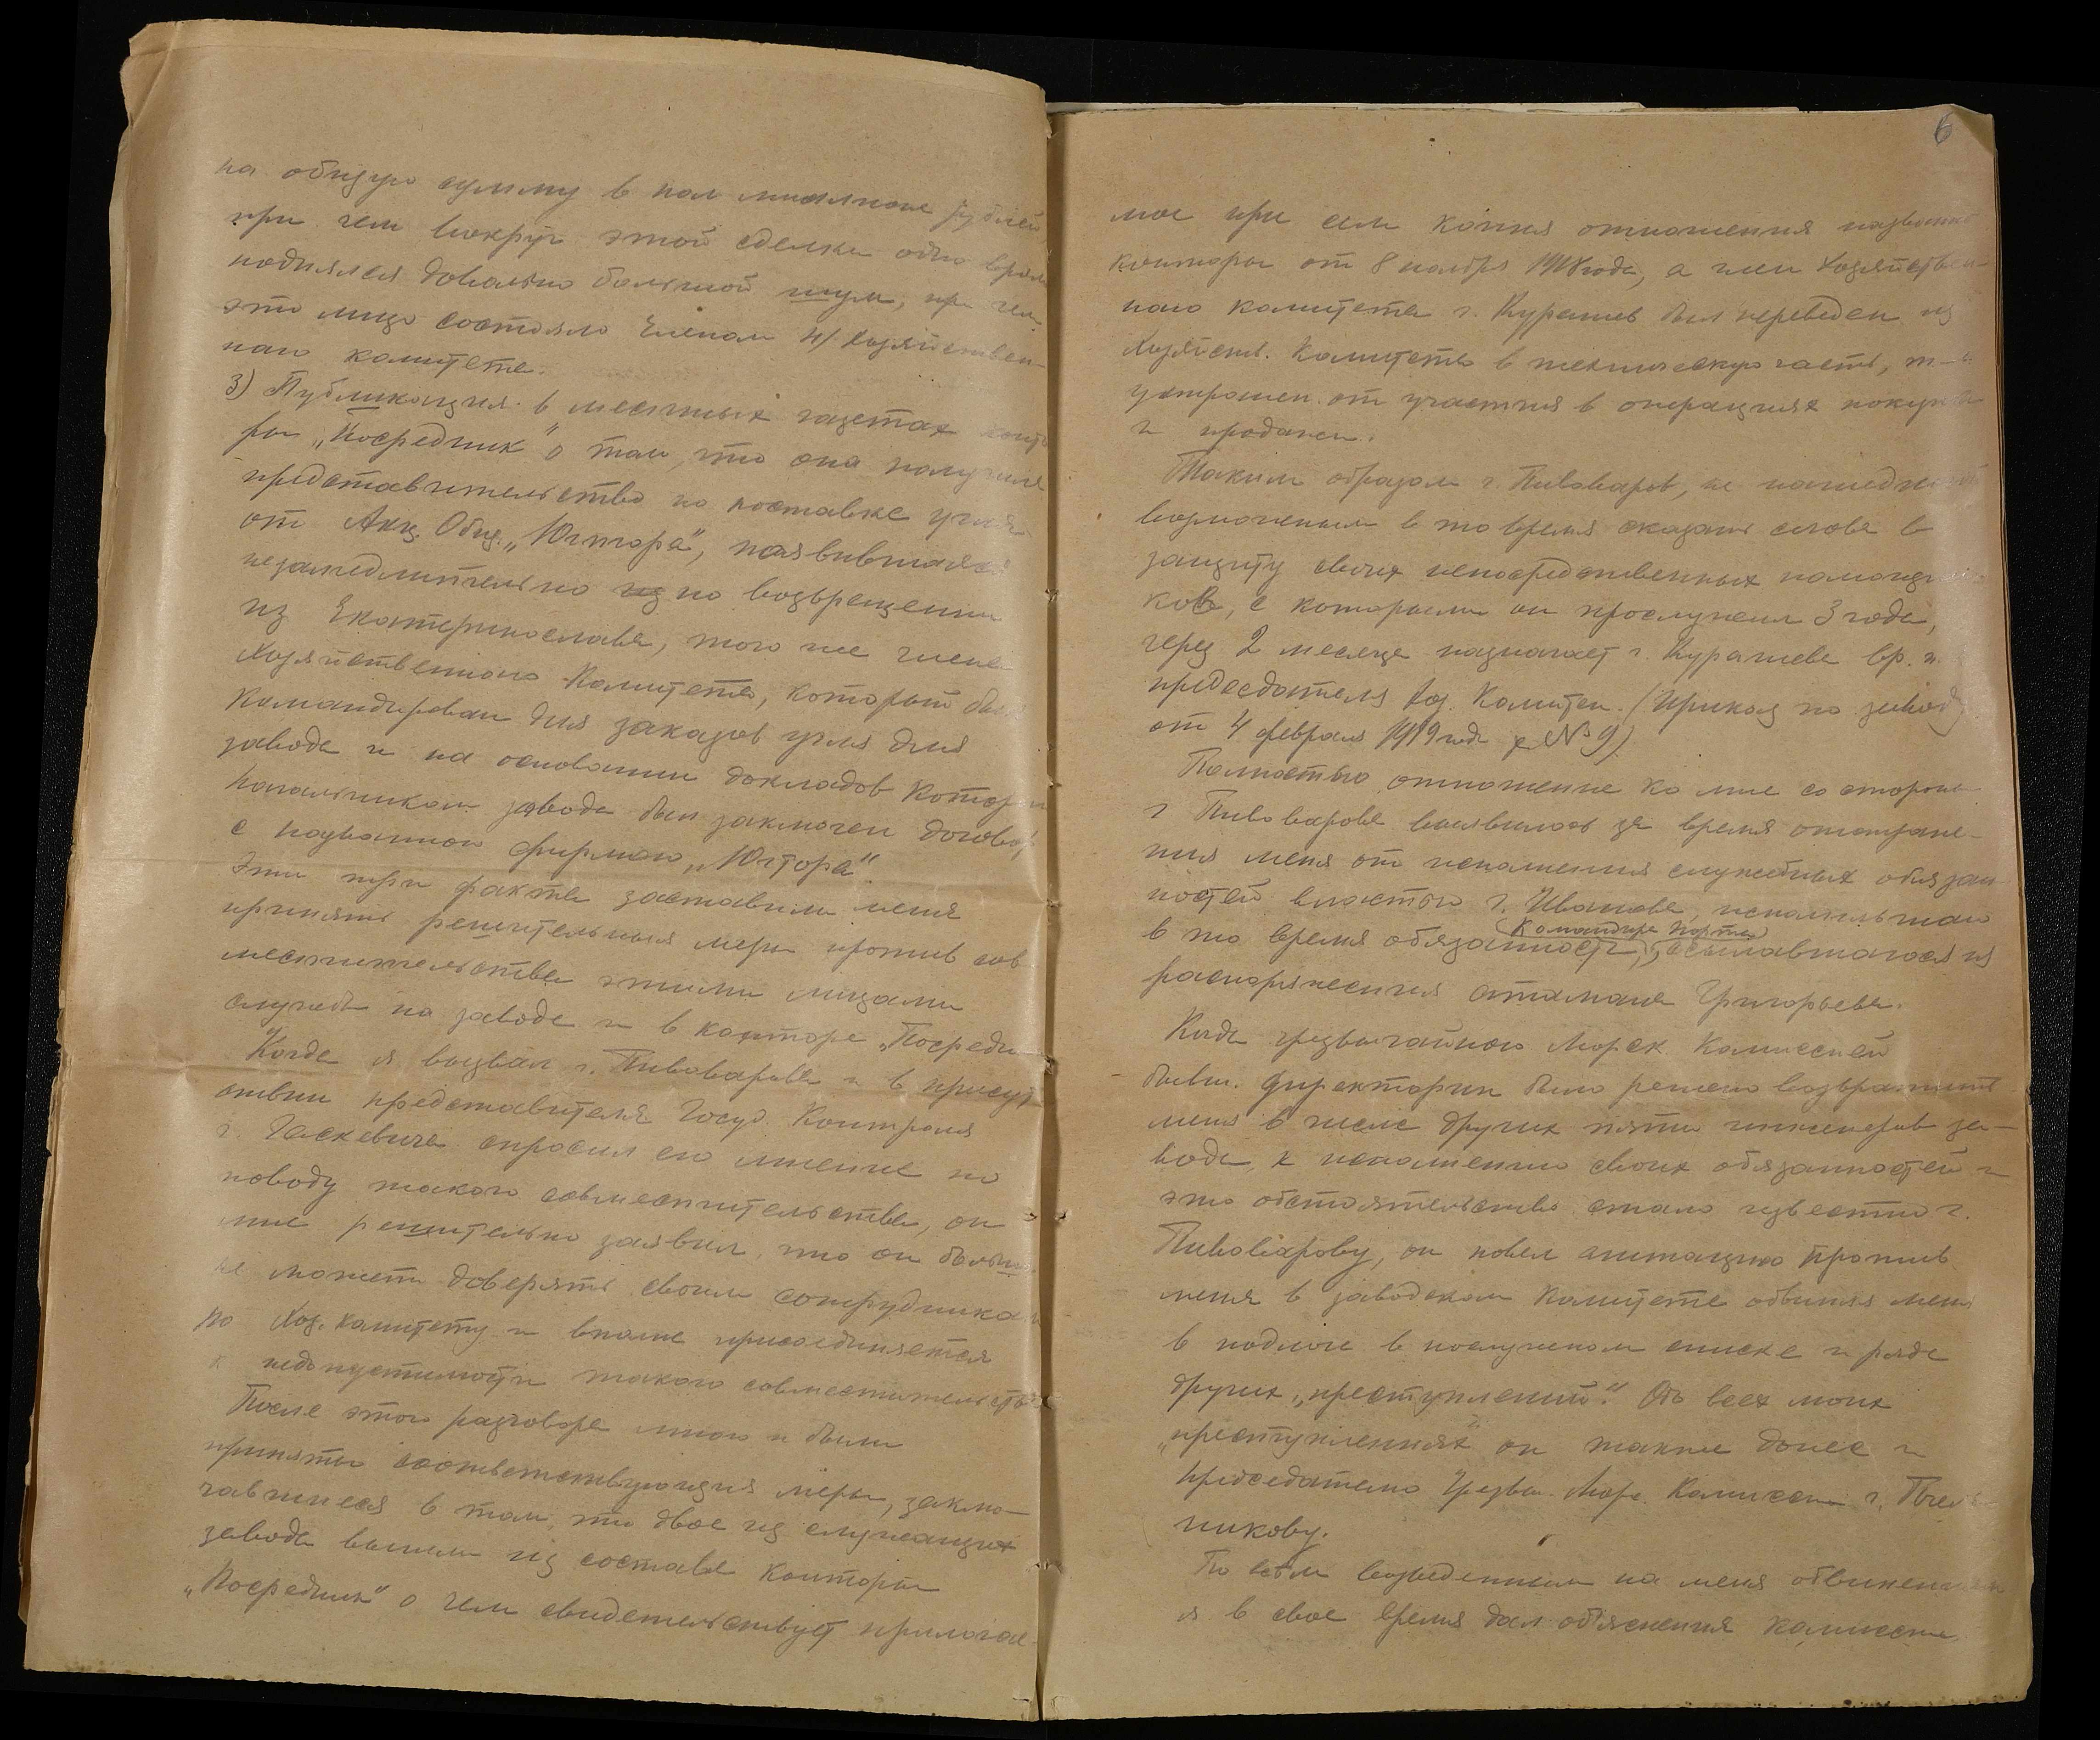 на общую сумму в пол миллиона рублей
при чем вокруг этой сделки одно время
поднялся довольно большой шум, при чем
это лицо состояло членом Н/ хозяйствен-
наго комитета.
3) Публикация в местных газетах конто
ры „Посредник" о том, что она получила
представительство на поставке угля
от Акц. Общ. „Югтора", появившаяся
незамедлительно из по возвращении
из Екатеринослава, того же члена
Хозяйственного Комитета, который был
командирован для заказов угля для
завода и на основании докладов которо
Начальником завода был заключен договор
с названной фирмою „Югтора".
Эти три факта заставили меня
принять решительныя меры против сов
местительства этими лицами
службы на заводе и в конторе „Посредн
Когда я вызвал г. Пивоварова и в присут
ствии представителя Госуд. Контроля
г. Гаскевича спросил его мнение по
поводу такого совместительства, он
мне решительно заявил, что он больше
не может доверять своим сотрудникам
по Хоз. Комитету и вполне присоединяется
к недопустимости такого совместительств
После этого разговора мною и были
приняты соответствующия меры, заклю-
чавшиеся в том, что двое из служащих
завода вышли из состава Конторы
„Посредник" о чем свидетельствует прилагае-
6
мое при сем копия отношения названной
конторы от 8 ноября 1918 года, а член Хозяйствен-
наго комитета г. Курашев был переведен из
Хозяйств. Комитета в техническую часть, т-е
устранен от участия в операциях покупки
и продажи.
Таким образом г. Пивоваров, не нашедший
возможным в то время сказать слова в
защиту своих непосредственных помощни
ков, с которыми он прослужил 3 года,
через 2 месяца назначает г. Курашева вр. и.
председателя Хоз. Комитет. (Приказ по заводу
от 4 февраля 1919 года № 9).
Полностью отношение ко мне со стороны
г Пивоварова выявилось за время отстране-
ния меня от исполнения служебных обязан
ностей властью г. Иванова, исполнявшаго
Командира Порта
в то время обязанности, ссылавшагося на
распоряжения атамана Григорьева.
Когда Чрезвычайною Морск. Комиссией
бывш. Директории было решено возвратить
меня в числе других пяти инженеров за-
вода, к исполнению своих обязанностей и
это обстоятельство стало известно г.
Пивоварову, он повел агитацию против
меня в заводском Комитете обвиняя меня
в подлоге в послужном списке и ряде
других „преступлений". Об всех моих
„преступлениях" он также донес и
Председателю Чрезвы. Морс. Комиссии г.
никову.
По всем возведенным на меня обвинениям
я в свое время дал объяснения комиссии